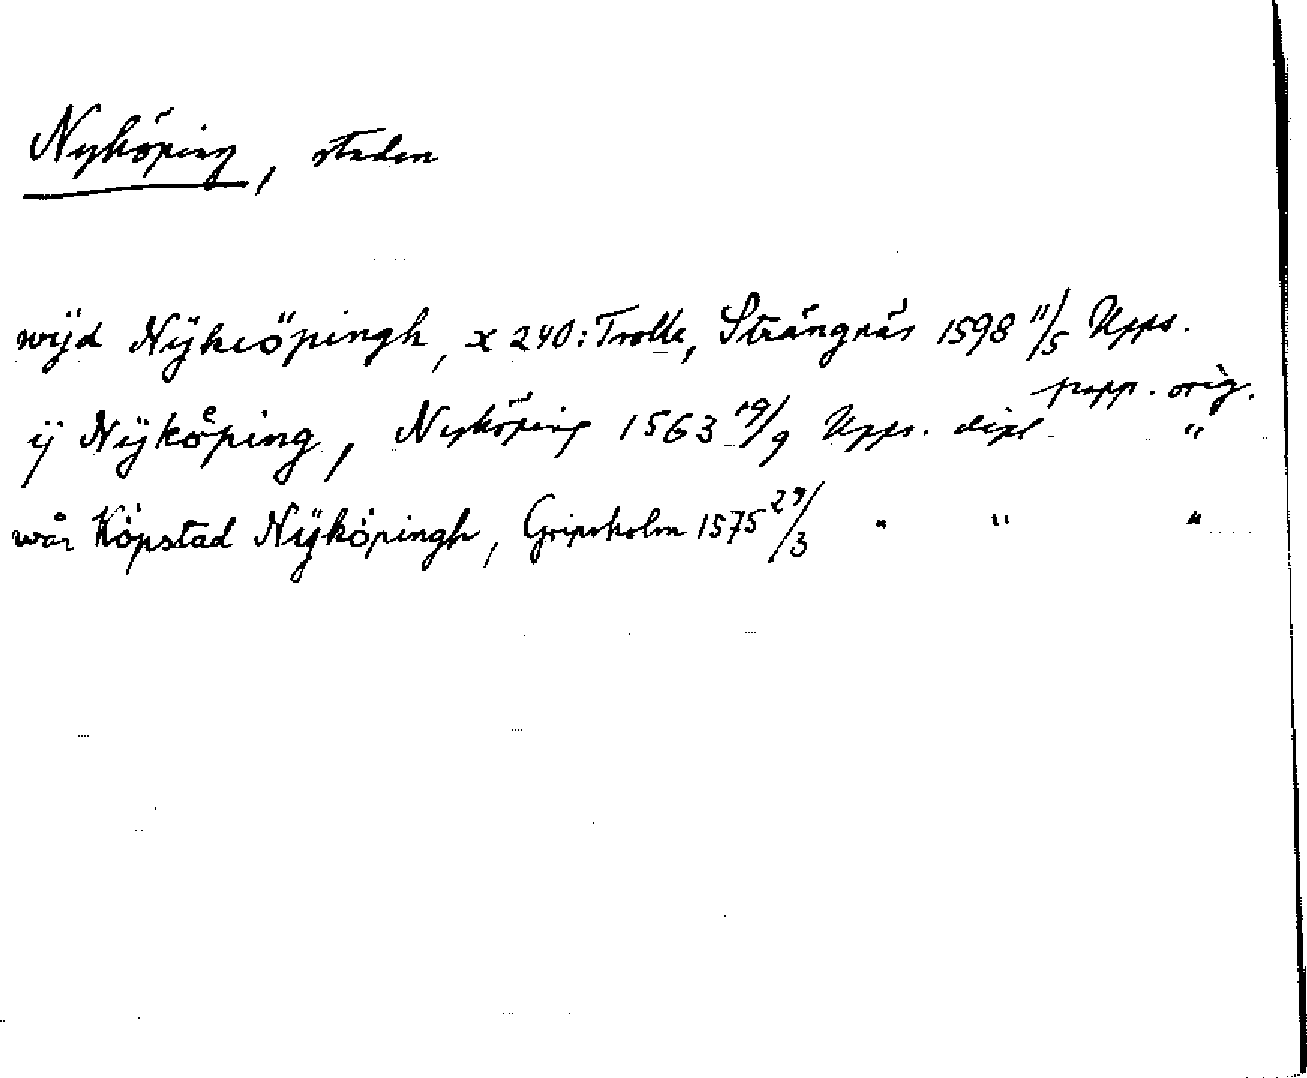 Nyköping, staden
wijd Nÿkiöpingh, x 240: Trolle, Strängnäs 1598 11/5 Upps.
papp. orig.
ÿ Nÿkoͤping, Nyköping 1563 19/9 Upps. dipl. "
wår Köpstad Nÿköpingh, Gripsholm 1575 29/3 " " "